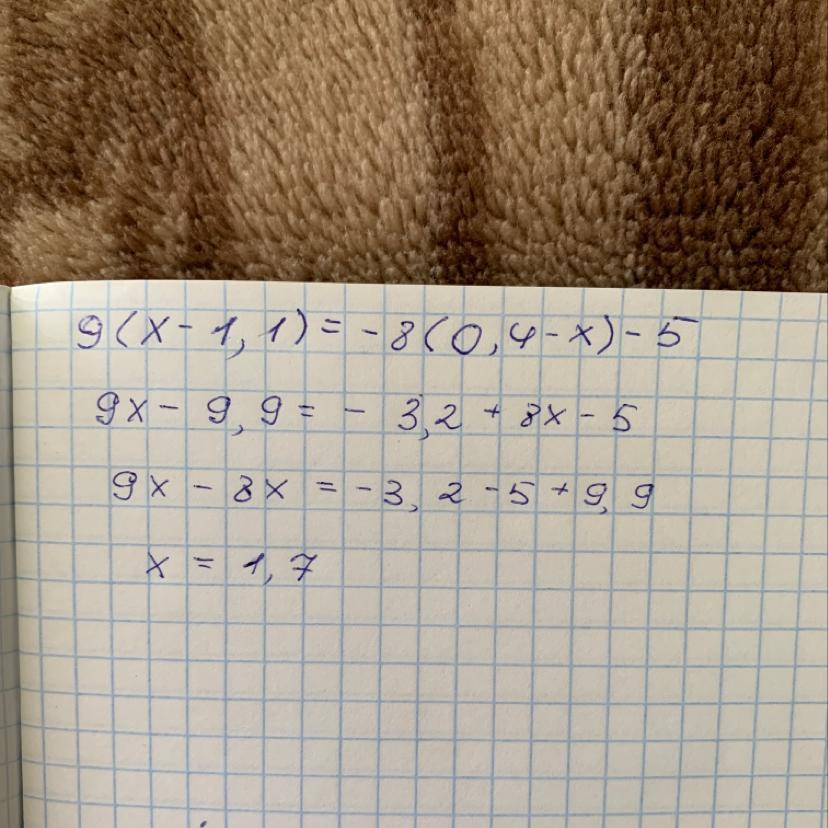 9(x-1,1)=-8(0,4-x)-5
9x-9,9=-3,2+8x-5
9x-8x=-3,2-5+9,9
x=1,7